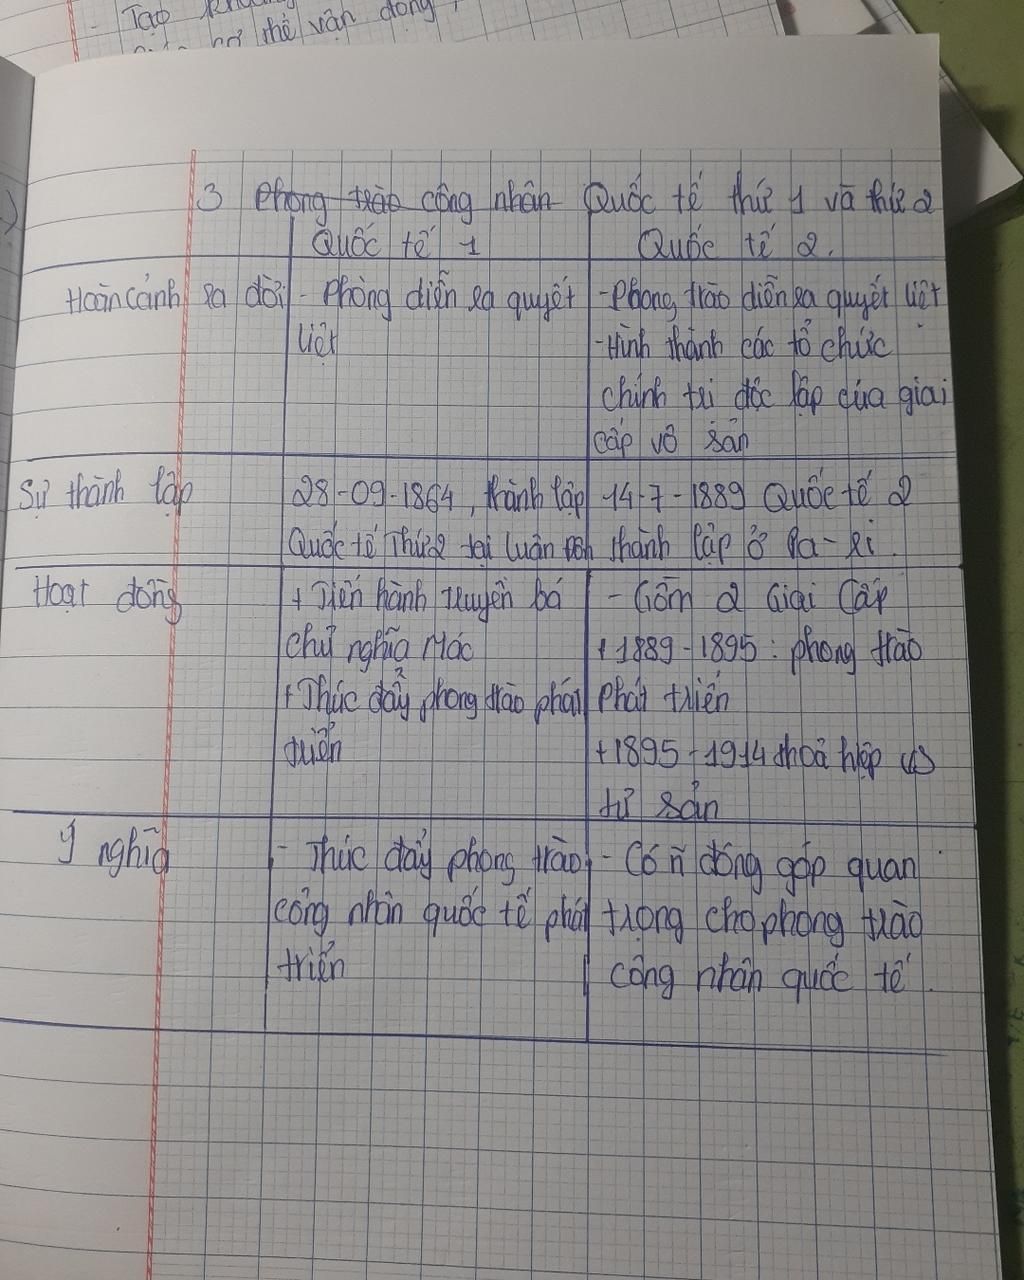 Tạo
thể vận động
3 Phong trào công nhân Quốc tế thứ 1 và thứ 2
Quốc tế 1 Quốc tế 2.
Hoàn cảnh ra đời - Phòng diễn ra quyết - Phong trào diễn ra quyết liệt
liệt - Hình thành các tổ chức
chính trị độc lập của giai
cấp vô sản
Sự thành lập 28-09-1864, thành lập 14-7-1889 Quốc tế 2
Quốc tế Thứ 2 tại Luân thành lập ở Pa-ri.
Hoạt động + Tiến hành truyền bá - Gồm 2 Giai Cấp
chủ nghĩa Mác + 1889-1895: phong trào
+ Thúc đẩy phong trào phát phát triển
triển + 1895-1914 thoả hiệp
tư sản
Ý nghĩa - Thúc đẩy phong trào - Có n đóng góp quan
công nhân quốc tế phát trọng cho phong trào
triển công nhân quốc tế.